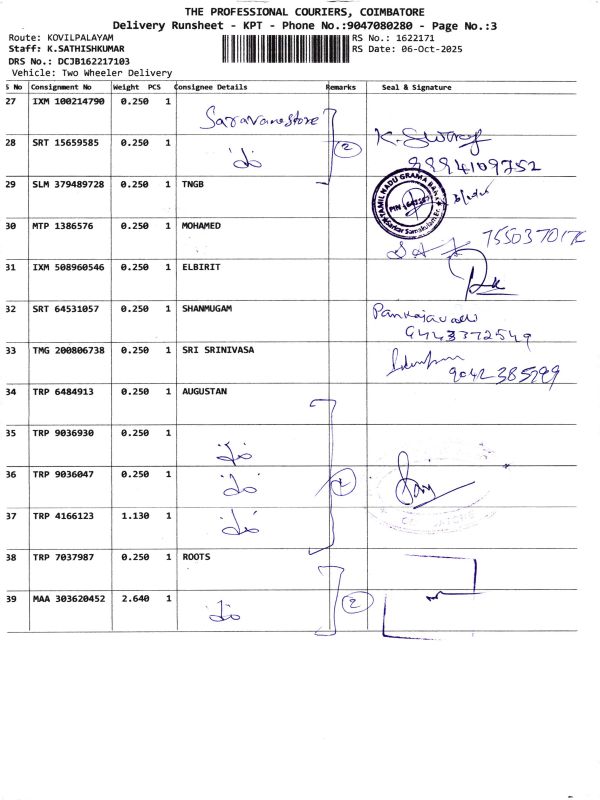 THE PROFESSIONAL COURIERS, COIMBATORE
Delivery Runsheet - KPT - Phone No.:9047080280 - Page No.:3
Route: KOVILPALAYAM
Staff: K.SATHISHKUMAR
DRS No.: DCJB162217103
Vehicle: Two Wheeler Delivery
RS No.: 1622171
RS Date: 06-Oct-2025
S No Consignment No Weight PCS Consignee Details Remarks Seal & Signature
27 IXM 100214790 0.250 1 Saravanastore
28 SRT 15659585 0.250 1 2
9994109752
29 SLM 379489728 0.250 1 TNGB
30 MTP 1386576 0.250 1 MOHAMED
31 IXM 508960546 0.250 1 ELBIRIT
32 SRT 64531057 0.250 1 SHANMUGAM Pankajavalli
9443372549
33 TMG 200806738 0.250 1 SRI SRINIVASA
34 TRP 6484913 0.250 1 AUGUSTAN
35 TRP 9036930 0.250 1
36 TRP 9036047 0.250 1
37 TRP 4166123 1.130 1
38 TRP 7037987 0.250 1 ROOTS
39 MAA 303620452 2.640 1 2